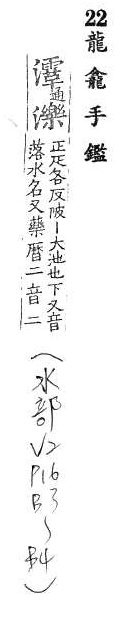 22 龍龕手鑑
通濼
正疋各反陂｜大池也下又音
落水名又藥暦二音二
(水部 V2 P16 B3～B4)